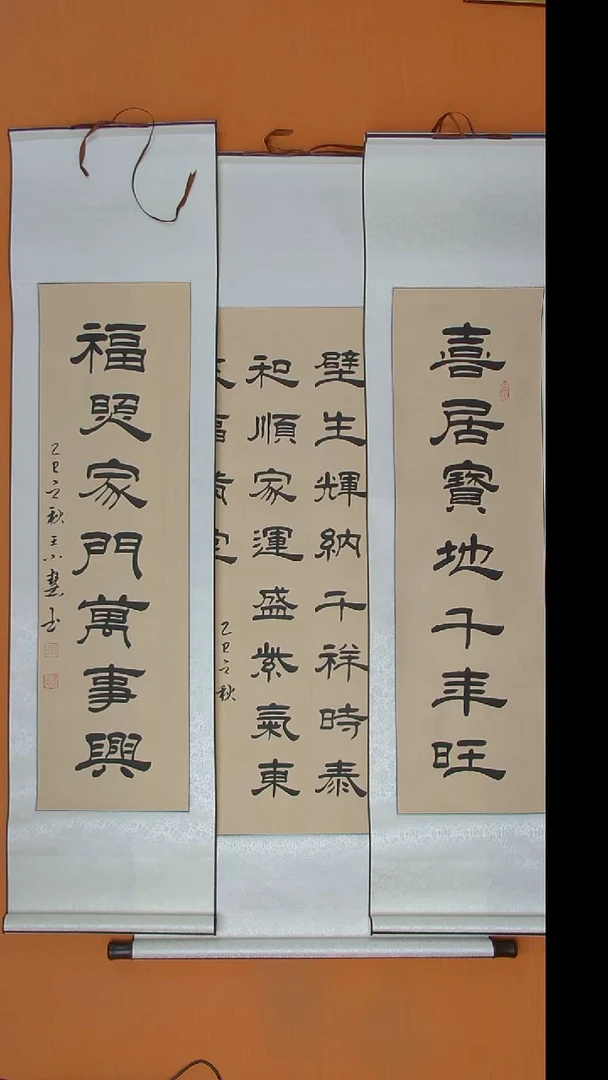 喜居寶地千年旺
壁生輝納千祥時泰
和順家運盛紫氣東
乙巳立秋
福照家門萬事興
乙巳立秋王小慧书